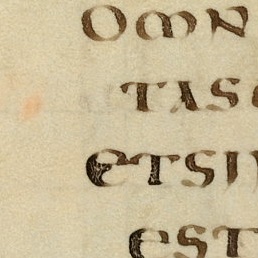 OMN
TAS
ETSI
EST